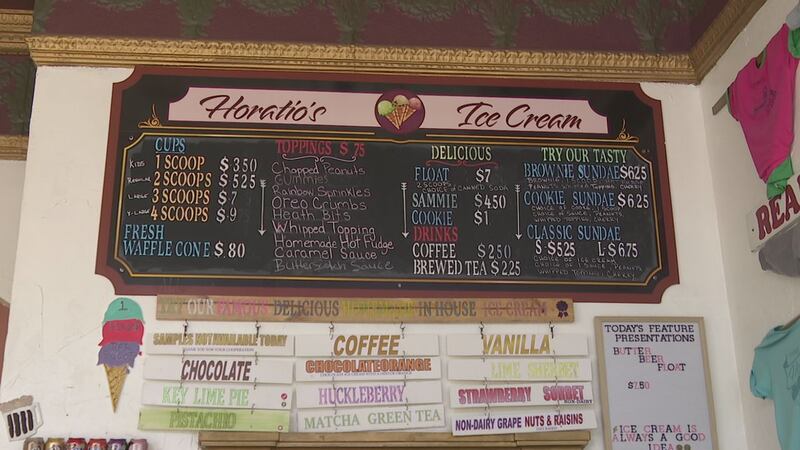 Horatio's Ice Cream
CUPS
KIDS 1 SCOOP $3.50
REGULAR 2 SCOOPS $5.25
LARGE 3 SCOOPS $7
X-LARGE 4 SCOOPS $9
FRESH
WAFFLE CONE $.80
TOPPINGS $.75
Chopped Peanuts
Gummies
Rainbow Sprinkles
Oreo Crumbs
Heath Bits
Whipped Topping
Homemade Hot Fudge
Caramel Sauce
Butterscotch Sauce
DELICIOUS
FLOAT $7
2 SCOOPS
CHOICE OF CANNED SODA
SAMMIE $4.50
COOKIE $1
DRINKS
COFFEE $2.50
BREWED TEA $2.25
TRY OUR TASTY
BROWNIE SUNDAE $6.25
PEANUTS, WHIPPED TOPPING, CHERRY
COOKIE SUNDAE $6.25
CHOICE OF SAUCE, PEANUTS,
WHIPPED TOPPING, CHERRY
CLASSIC SUNDAE
S-$5.25 L-$6.75
CHOICE OF ICE CREAM
CHOICE OF 1 SAUCE, PEANUTS
WHIPPED TOPPING, CHERRY
TRY OUR FAMOUS DELICIOUS HOMEMADE IN HOUSE ICE CREAM
SAMPLES NOT AVAILABLE TODAY
THANK YOU FOR YOUR COOPERATION
CHOCOLATE
KEY LIME PIE
PISTACHIO
COFFEE
CHOCOLATE ORANGE
HUCKLEBERRY
MATCHA GREEN TEA
VANILLA
LIME SHERBET
STRAWBERRY SORBET
NON-DAIRY
NON-DAIRY GRAPE NUTS & RAISINS
TODAY'S FEATURE
PRESENTATIONS
BUTTER
BEER
FLOAT
$7.50
*ICE CREAM IS
ALWAYS A GOOD
IDEA
REA
1